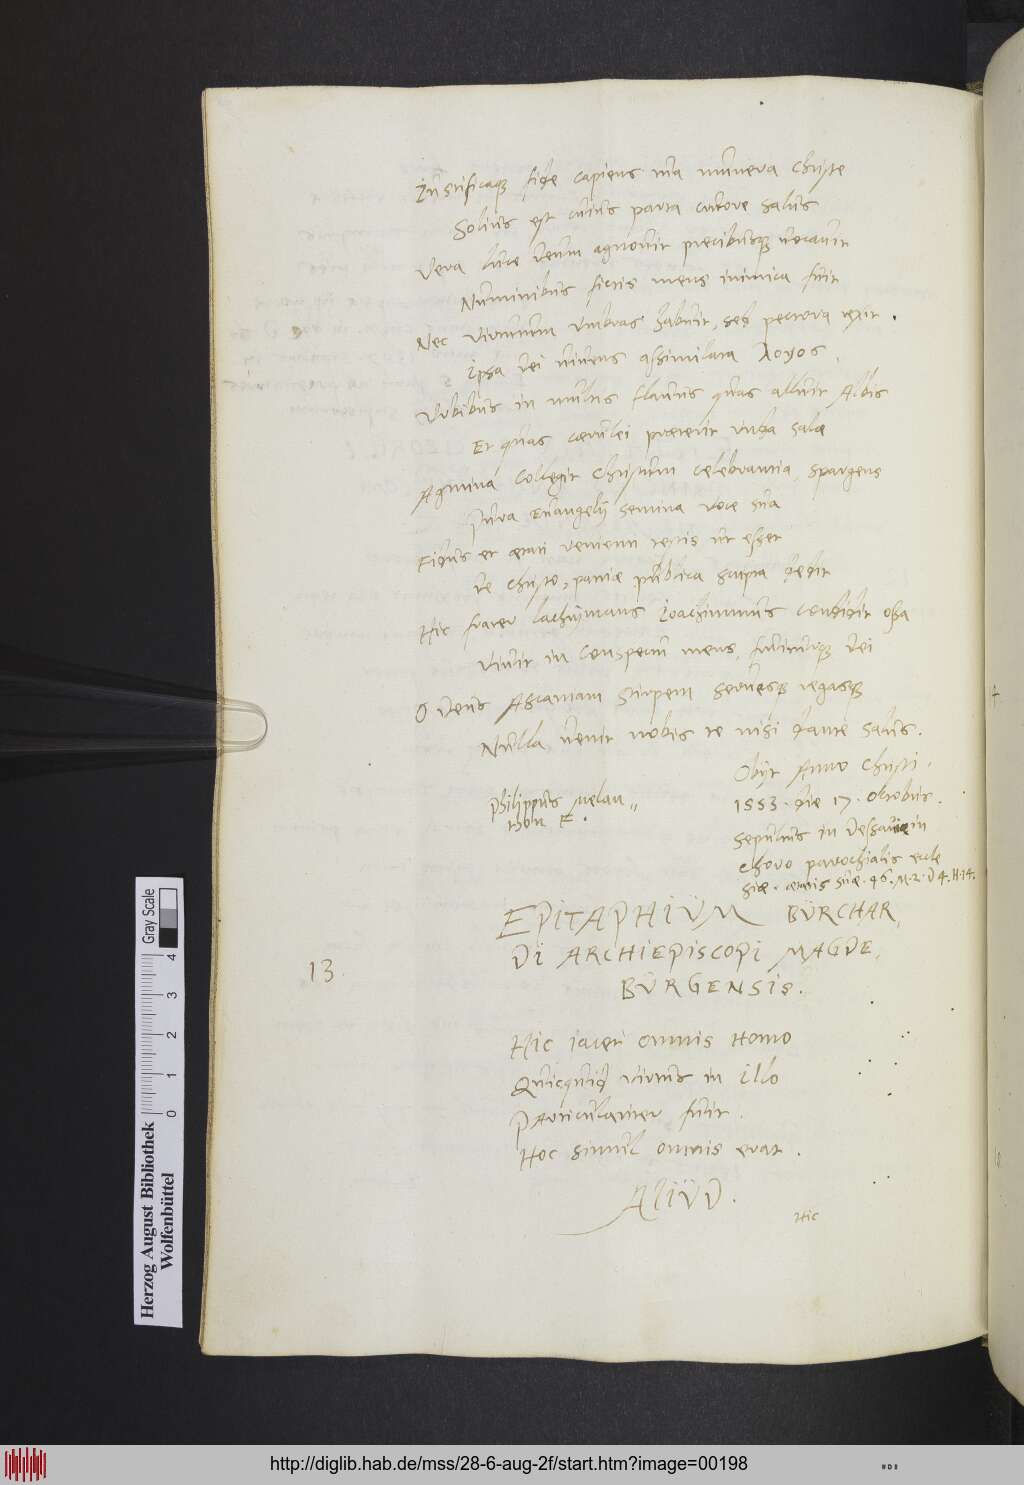 Iustificaq; fide capiens tua munera Christe
Solius est cuius parta cruore salus
Vera luce deum agnouit precibusq; vocauit
Numinibus fictis mens inimica fuit
Nec virtutum vmbras habuit, sed pectora rexit.
Ipsa dei viuens assimilata λογος.
Vrbibus in multis flauus quas alluit Albis
Et quas cærulei præterit vnda salæ
Agmina Collegit Christum celebrantia, spargens
Pura Euangelij semina voce sua
Fidus et ætati venienti testis vt esset
de Christo, patriæ publica scripta dedit
Hic frater lachrymans Ioachimus condidit ossa
Viuit in conspectu mens, fruiturq; dei
O deus Ascaniam stirpem seruesq; regasq;
Nulla venit nobis te nisi dante salus.
Obijt Anno Christi.
1553. die 17. Octobris.
Philippus Melan„
thon F.
sepultus in Dessauiæ in
choro parochialis eccle
siæ. ætatis suæ. 46. M. 2. D 4. H. 14.
EPITAPHIUM BURCHAR,
DI ARCHIEPISCOPI MAGDE,
BURGENSIS.
13
Hic iacet omnis Homo
Quicquid virtus in illo
Particulariter fuit.
Hoc simul omnis erat.
ALIUD.
Hic
Herzog August Bibliothek
Wolfenbüttel
0 1 2 3 4
Gray Scale
http://diglib.hab.de/mss/28-6-aug-2f/start.htm?image=00198